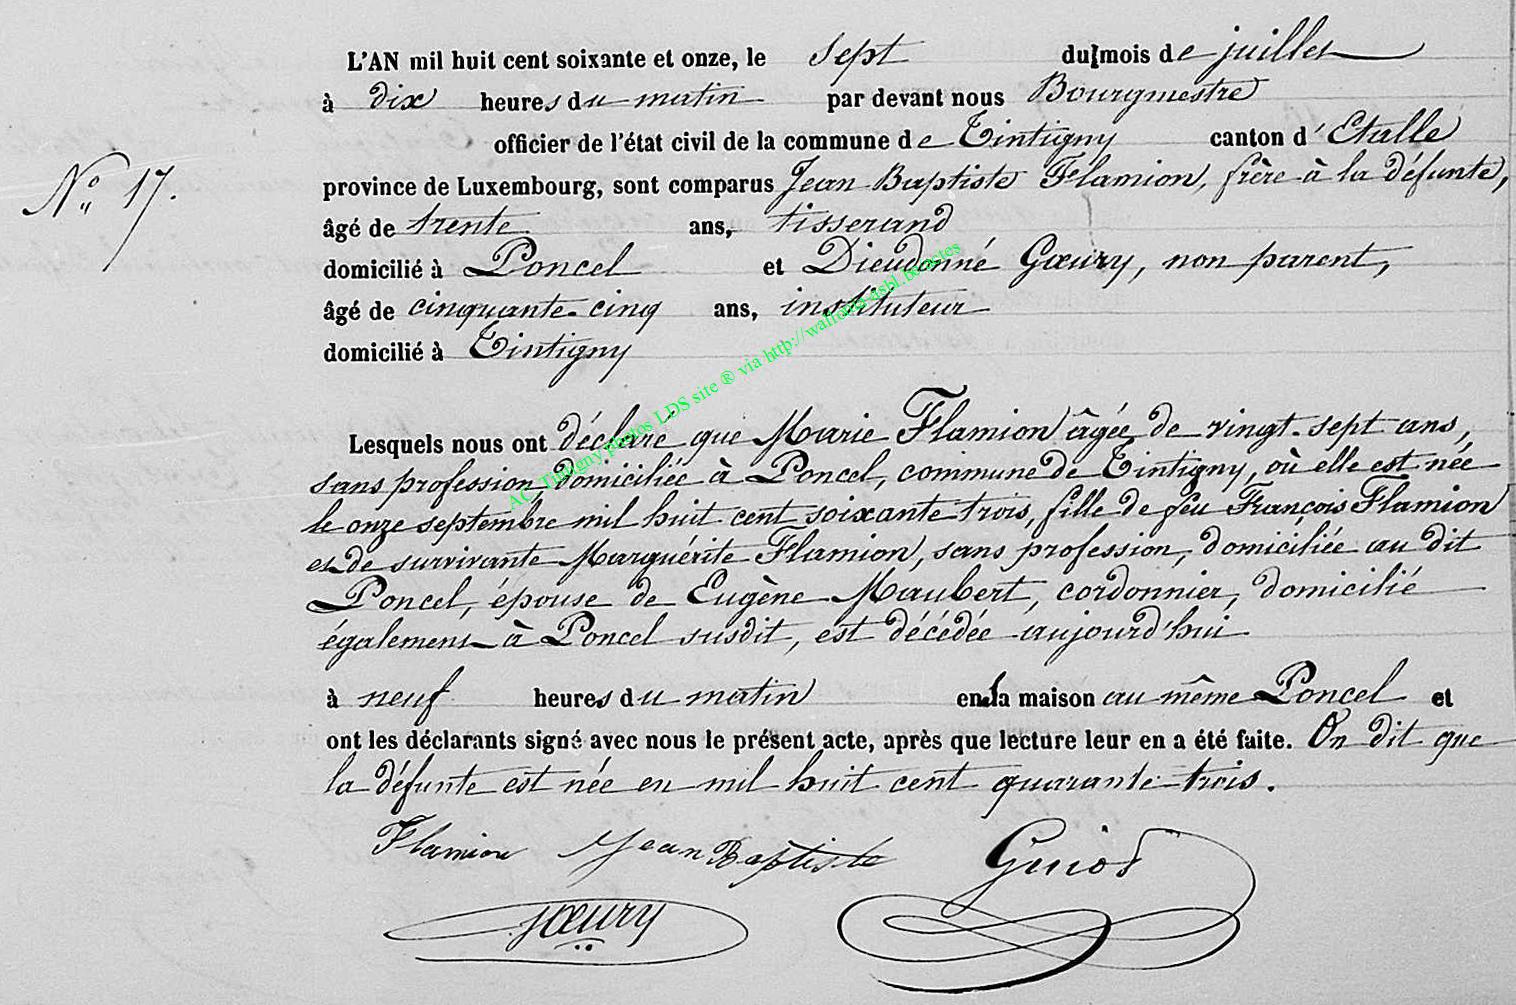 L'AN mil huit cent soixante et onze, le sept du mois de juillet
à dix heures du matin par devant nous Bourgmestre
officier de l'état civil de la commune de Tintigny canton d'Etalle
N° 17.
province de Luxembourg, sont comparus Jean Baptiste Flamion, frère à la défunte,
âgé de trente ans, tisserand
domicilié à Poncel et Dieudonné Gœury, non parent,
âgé de cinquante-cinq ans, instituteur
domicilié à Tintigny
Lesquels nous ont déclaré que Marie Flamion âgée de vingt-sept ans,
sans profession, domiciliée à Poncel, commune de Tintigny, où elle est née
le onze septembre mil huit cent soixante trois, fille de feu François Flamion
et de survivante Marguérite Flamion, sans profession, domiciliée au dit
Poncel, épouse de Eugène Maubert, cordonnier, domicilié
également à Poncel susdit, est décédée aujourd'hui
à neuf heures du matin en la maison au même Poncel et
ont les déclarants signé avec nous le présent acte, après que lecture leur en a été faite. On dit que
la défunte est née en mil huit cent quarante-trois.
Flamion Jean Baptiste Guiot
Gœury
AC Tintigny photos LDS site ® via http://wallonia-asbl.be/actes